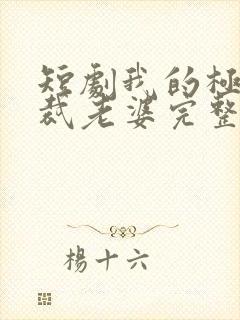 短劇我的極
裁老婆完整
楊十六